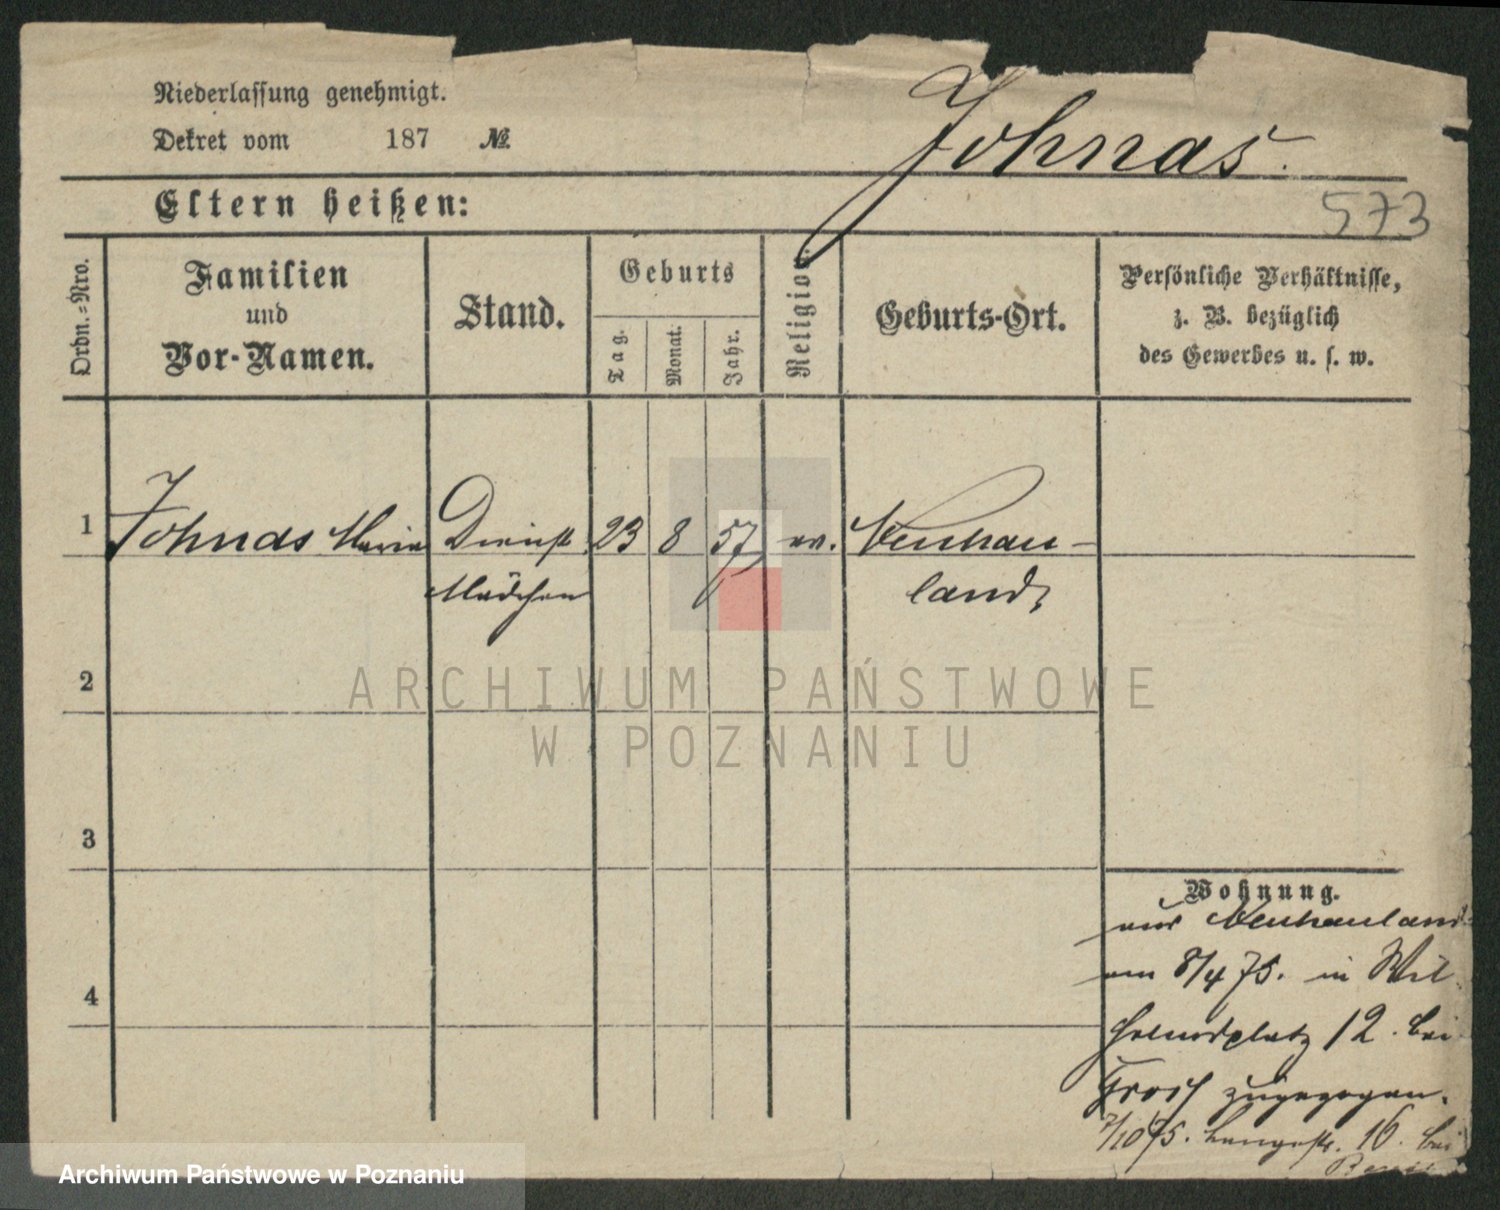 Niederlassung genehmigt.
Dekret vom 187 №
Johnas.
Eltern heißen:
573
Ordn.-Nro.
Familien
und
Vor-Namen.
Stand.
Geburts
Tag.
Monat.
Jahr.
Religion.
Geburts-Ort.
Persönliche Verhältnisse,
z. B. bezüglich
des Gewerbes u. s. w.
1 Johnas Marie Dienst 23 8 57 ev. Neuhau-
Mädchen land,
2
ARCHIWUM PAŃSTWOWE
W POZNANIU
3
Wohnung.
aus Neuhauland
am 8/4 75. in Wil
4
helmsplatz 12. bei
zugezogen.
7/10 75. Langestr. 16. bei
Archiwum Państwowe w Poznaniu